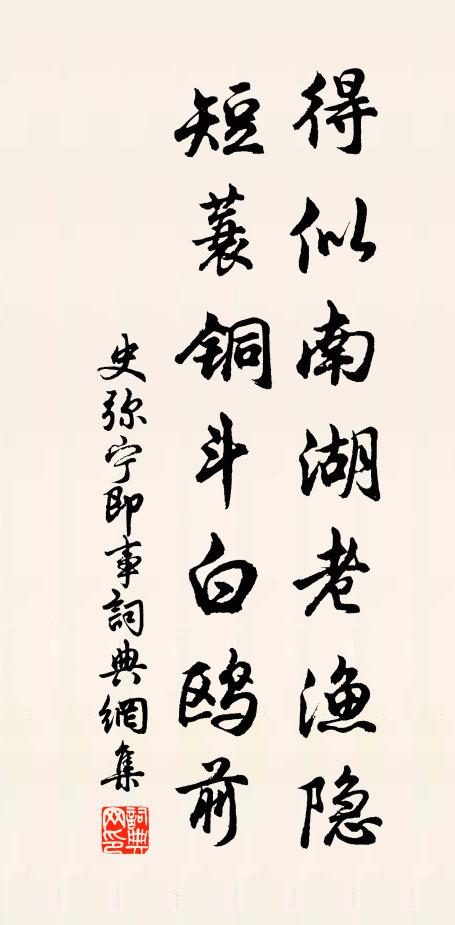 得似南湖老漁隐
短蓑铜斗白鸥前
史弥宁即事詞典網集
詞典網印